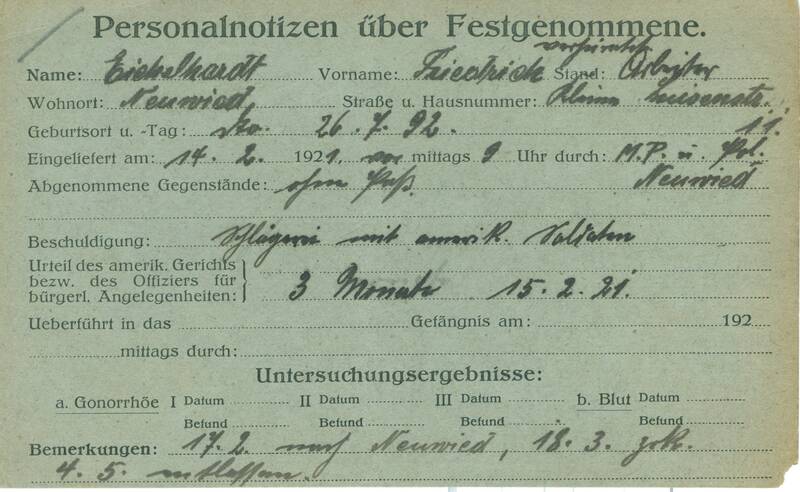 Personalnotizen über Festgenommene.
verheiratet
Name: Eichelhardt Vorname: Friedrich Stand: Arbeiter
Wohnort: Neuwied Straße u. Hausnummer: Kleine Luisenstr.
Geburtsort u. -Tag: do. 26.7.92. 11.
Eingeliefert am: 14.2. 1921, vor mittags 9 Uhr durch: M.P. u. Pol.
Abgenommene Gegenstände: ohne Paß. Neuwied
Beschuldigung: Schlägerei mit amerik. Soldaten
Urteil des amerik. Gerichts
bezw. des Offiziers für
bürgerl. Angelegenheiten: 3 Monate 15.2.21.
Ueberführt in das Gefängnis am: 192
mittags durch:
Untersuchungsergebnisse:
a. Gonorrhöe I Datum II Datum III Datum b. Blut Datum
Befund Befund Befund Befund
Bemerkungen: 17.2. nach Neuwied, 18.3. zrk.
4.5. entlassen.